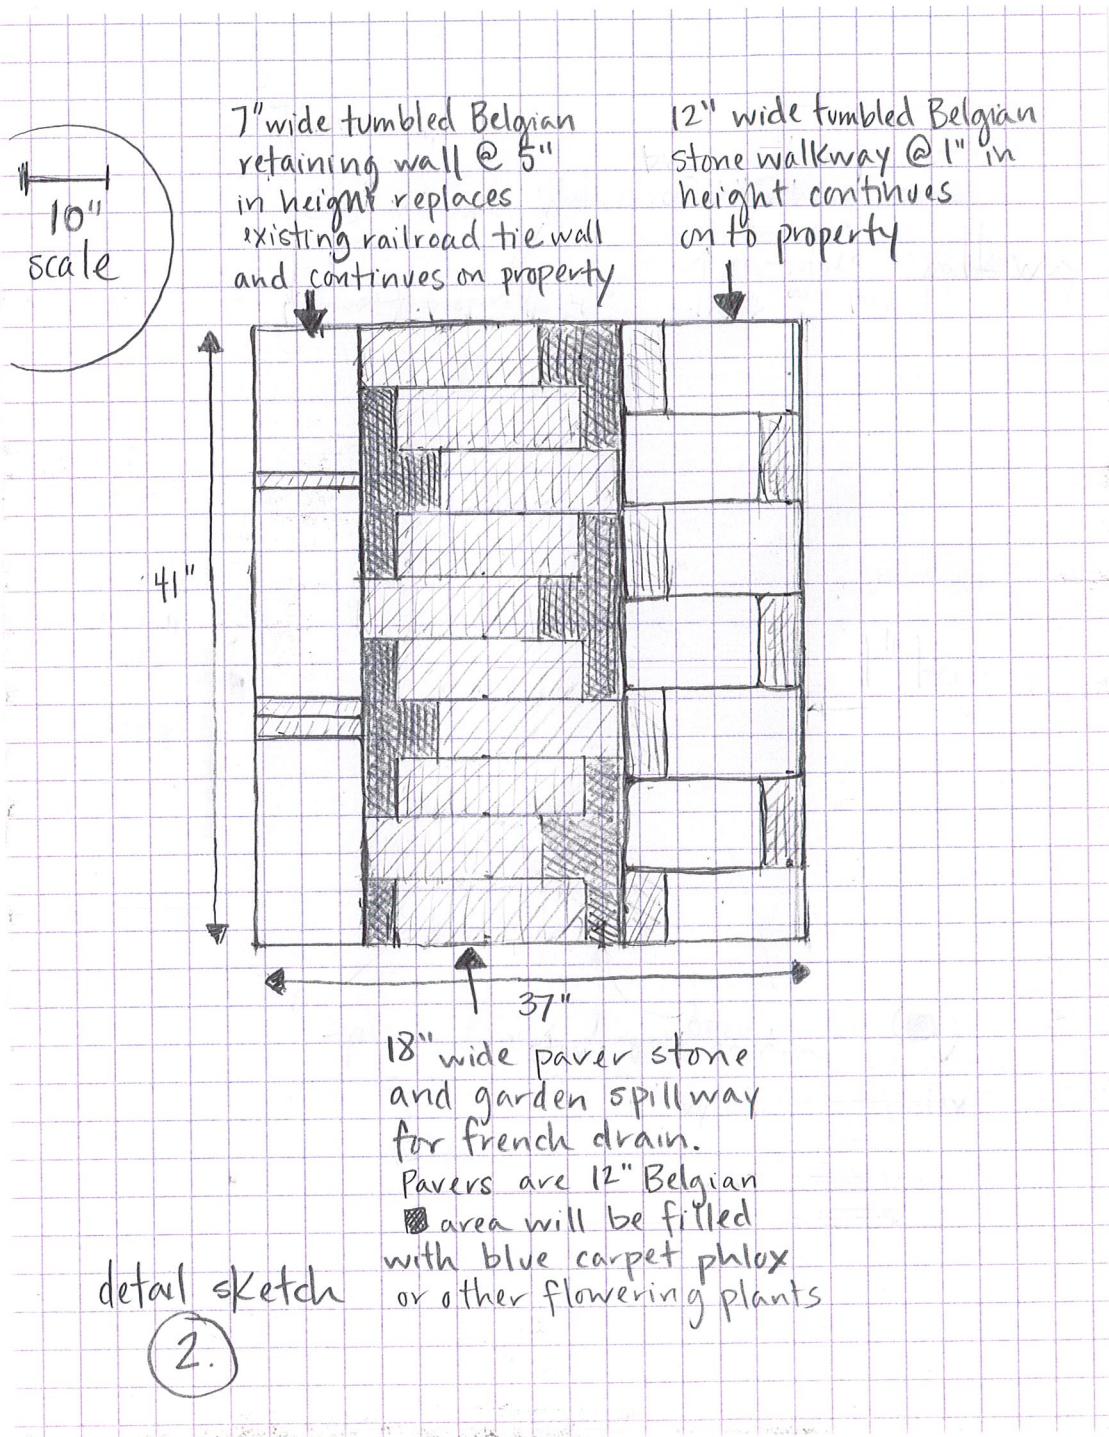 7" wide tumbled Belgian
retaining wall @ 5"
in height replaces
existing railroad tie wall
and continues on property
12" wide tumbled Belgian
stone walkway @ 1" in
height continues
on to property
10"
scale
41"
37"
18" wide paver stone
and garden spillway
for french drain.
Pavers are 12" Belgian
area will be filled
with blue carpet phlox
or other flowering plants
detail sketch
2.